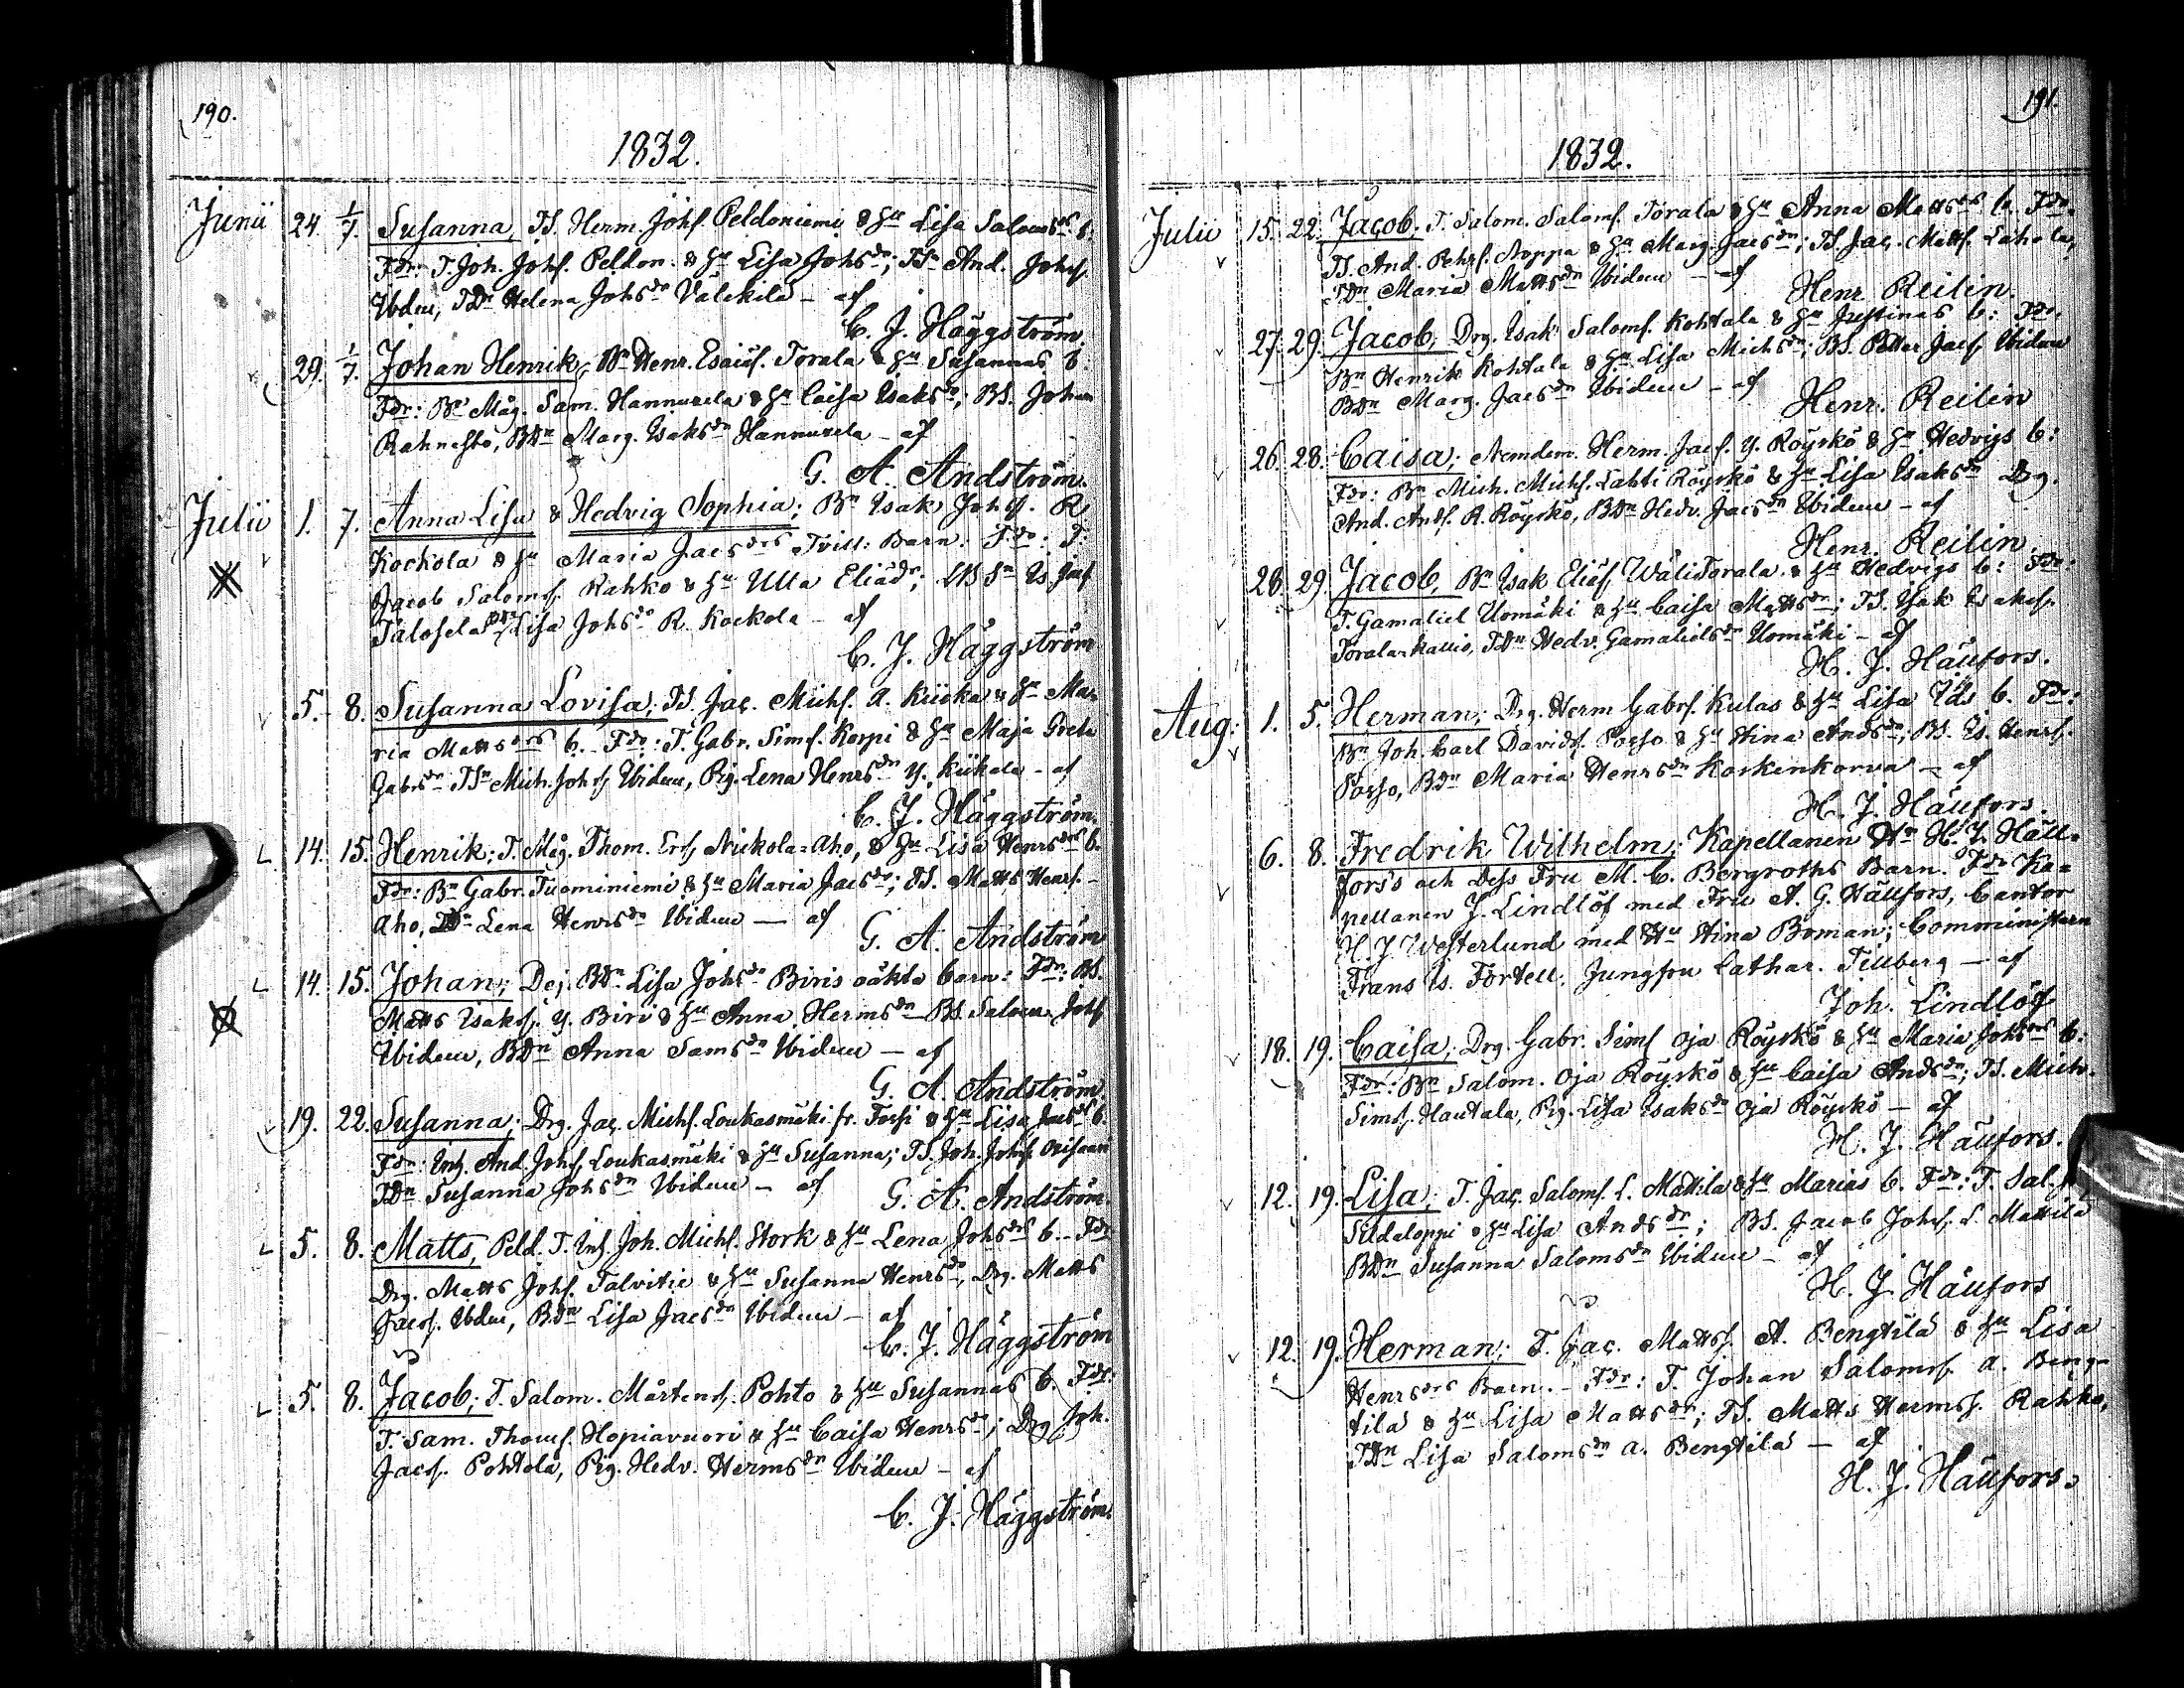 190.
1832.
Junii 24. 1/7. Susanna, TS. Herm. Johs. Peldoniemi & Hu Lisa Saloms drs b.
Fdr: T. Joh. Johs. Peldon. & Hu Lisa Johsdr; TSn And. Johss.
Ibdm, TDn Helena Johsdr Välikilä – af
C. J. Häggström.
29. 1/7. Johan Henrik, Bn Henr. Esaiæs. Torala & Hu Susannas b.
Fdr: Bn Måg. Sam. Hannuxela & Hu Caisa Isaksdr; BS. Johan
Rahnasto, BDn Marg. Isaksdr Hannuxela – af
G. A. Andström.
Julii 1. 7. Anna Lisa & Hedvig Sophia; Bn Isak Johss. R.
Kockola & Hu Maria Jacsdrs Tvill: Barn: Fdr: T:
Jacob Saloms. Rahko & Hu Ulla Eliædr; Is. Jacs.
Talosela Lisa Johsdr R. Kockola – af
C. J. Häggström
5. 8. Susanna Lovisa; TS. Jac. Michs. A. Kiicka & Hu Ma-
ria Mattsdrs b. Fdr: T. Gabr. Sims. Korpi & Hu Maja Greta
Gabrsdr TSn Mich. Johss. Ibidem, Pig. Lena Henrsdr Y. Kiikala – af
C. J. Häggström.
14. 15. Henrik; T. Måg. Thom. Ers. Nickola-Aho, & Hu Lisa Henrsdrs b.
Fdr: Bn Gabr. Tuominiemi & Hu Maria Jacsdr; TS. Matts Henrs.
Aho, TDn Lena Henrsdr Ibidem — af
G. A. Andström
14. 15. Johan; Dej. BDn Lisa Johsdr Biris oäkta barn: Fdr: BS.
Matts Isakss. Y. Biri & Hu Anna Hermsdr BS. Salom. Johs.
Ibidem, BDn Anna Samsdr Ibidem – af
G. A. Andström
19. 22. Susanna; Drg. Jac. Michs. Loukasmäki fr. Forsi & Hu Lisa Jacsdrs b.
Fdr: Inh. And. Johs. Loukasmäki & Hu Susanna; TS. Joh. Johss. Orisaari
TDn Susanna Johsdr Ibidem – af
G. A. Andström.
5. 8. Matts, Peld. T. Inh. Joh. Michs. Stork & Hu Lena Johsdrs b. Fdr
Drg. Matts Johs. Talvitie & Hu Susanna Henrsdr, Drg. Matts
Jacss. Ibdm, BDn Lisa Jacsdr Ibidem – af
C. J. Häggström
5. 8. Jacob; T. Salom. Mårtens. Pohto & Hu Susannas b. Fdr:
T. Sam. Thoms. Hopiavuori & Hu Caisa Henrsdr; Drg Joh.
Jacss. Pohtola, Pig. Hedv. Hermsdr Ibidem – af
C. J. Häggström.
191.
1832.
Julii 15. 22. Jacob, T. Salom. Saloms. Torala & Hu Anna Mattsdrs b. Fdr.
TS. And. Pehrs. Noppa & Hu Marg. Jacsdr; TS. Jac. Matts. Lahola,
TDn Maria Mattsdr Ibidem – af
Henr. Reilin.
27. 29. Jacob, Drg. Isak Saloms. Kohtala & Hu Justinas b: Fdr.
Bn Henrik Kohtala & Hu Lisa Michsdr; BS. Petter Jacs. Ibidem
BDn Marg. Jacsdr Ibidem – af
Henr. Reilin
26. 28. Caisa; Nemdem. Herm. Jacs. Y. Röyskö & Hu Hedvigs b:
Fdr: Bn Mich. Michs. Lahti Röyskö & Hu Lisa Isaksdr Drg.
And. Ands. R. Röyskö, BDn Hedv. Jacsdr Ibidem – af
Henr. Reilin.
28. 29. Jacob, Bn Isak Eliæs. Wäli Torala & Hu Hedvigs b: Fdr:
T. Gamaliel Uomäki & Hu Caisa Mattsdr; TS. Isak Isakss.
Torala-Kallio, TDn Hedv. Gamalielsdr Uomäki – af
H. J. Hällfors.
Aug: 1. 5. Herman; Drg. Herm Gabrs. Kulas & Hu Lisa b. Fdr:
Bn Joh. Carl Davids. Passo & Hu Stina Andsdr; BS. Is. Henrs.
Passo, BDn Maria Henrsdr Koskenkorva – af
H. J. Hällfors.
6. 8. Fredrik Wilhelm; Kapellanen Hr H. J. Häll-
fors's och Dess Fru M. C. Bergroths Barn. Fdr Ka-
pellanen J. Lindlöf med Fru A. G. Hällfors, Cantor
H. J. Westerlund med Hu Stina Boman; Comminstern
Frans Is. Fortell; Jungfru Cathar. Tillberg – af
Joh. Lindlöf
18. 19. Caisa; Drg. Gabr. Sims. Oja Röyskö & Hu Maria Johsdrs b:
Fdr: Bn Salom. Oja Röyskö & Hu Caisa Andsdr; TS. Mich.
Sims. Hautala, Pig. Lisa Isaksdr Oja Röyskö – af
H. J. Hällfors.
12. 19. Lisa; T. Jac. Saloms. L. Mattila & Hu Marias b. Fdr: T. Sal.
Sildaloppi & Hu Lisa Andsdr; BS. Jacob Johs. L. Mattila
BDn Susanna Salomsdr Ibidem – af
H. J. Hällfors
12. 19. Herman; T. Jac. Mattss. A. Bengtilä & Hu Lisa
Henrsdrs Barn. – Fdr: T. Johan Saloms. A. Beng-
tilä & Hu Lisa Mattsdr; TS. Matts Hermss. Rahko,
TDn Lisa Salomsdr A. Bengtilä – af
H. J. Hällfors.